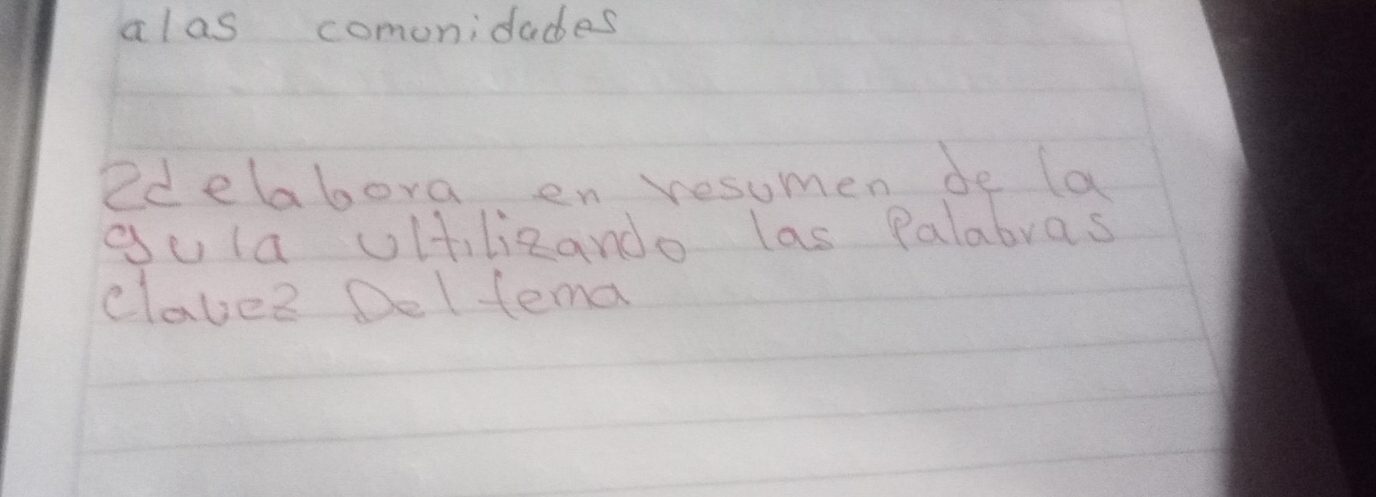 alas comunidades
2d elabora en resumen de la
guia ultilizando las Palabras
clavez Del tema